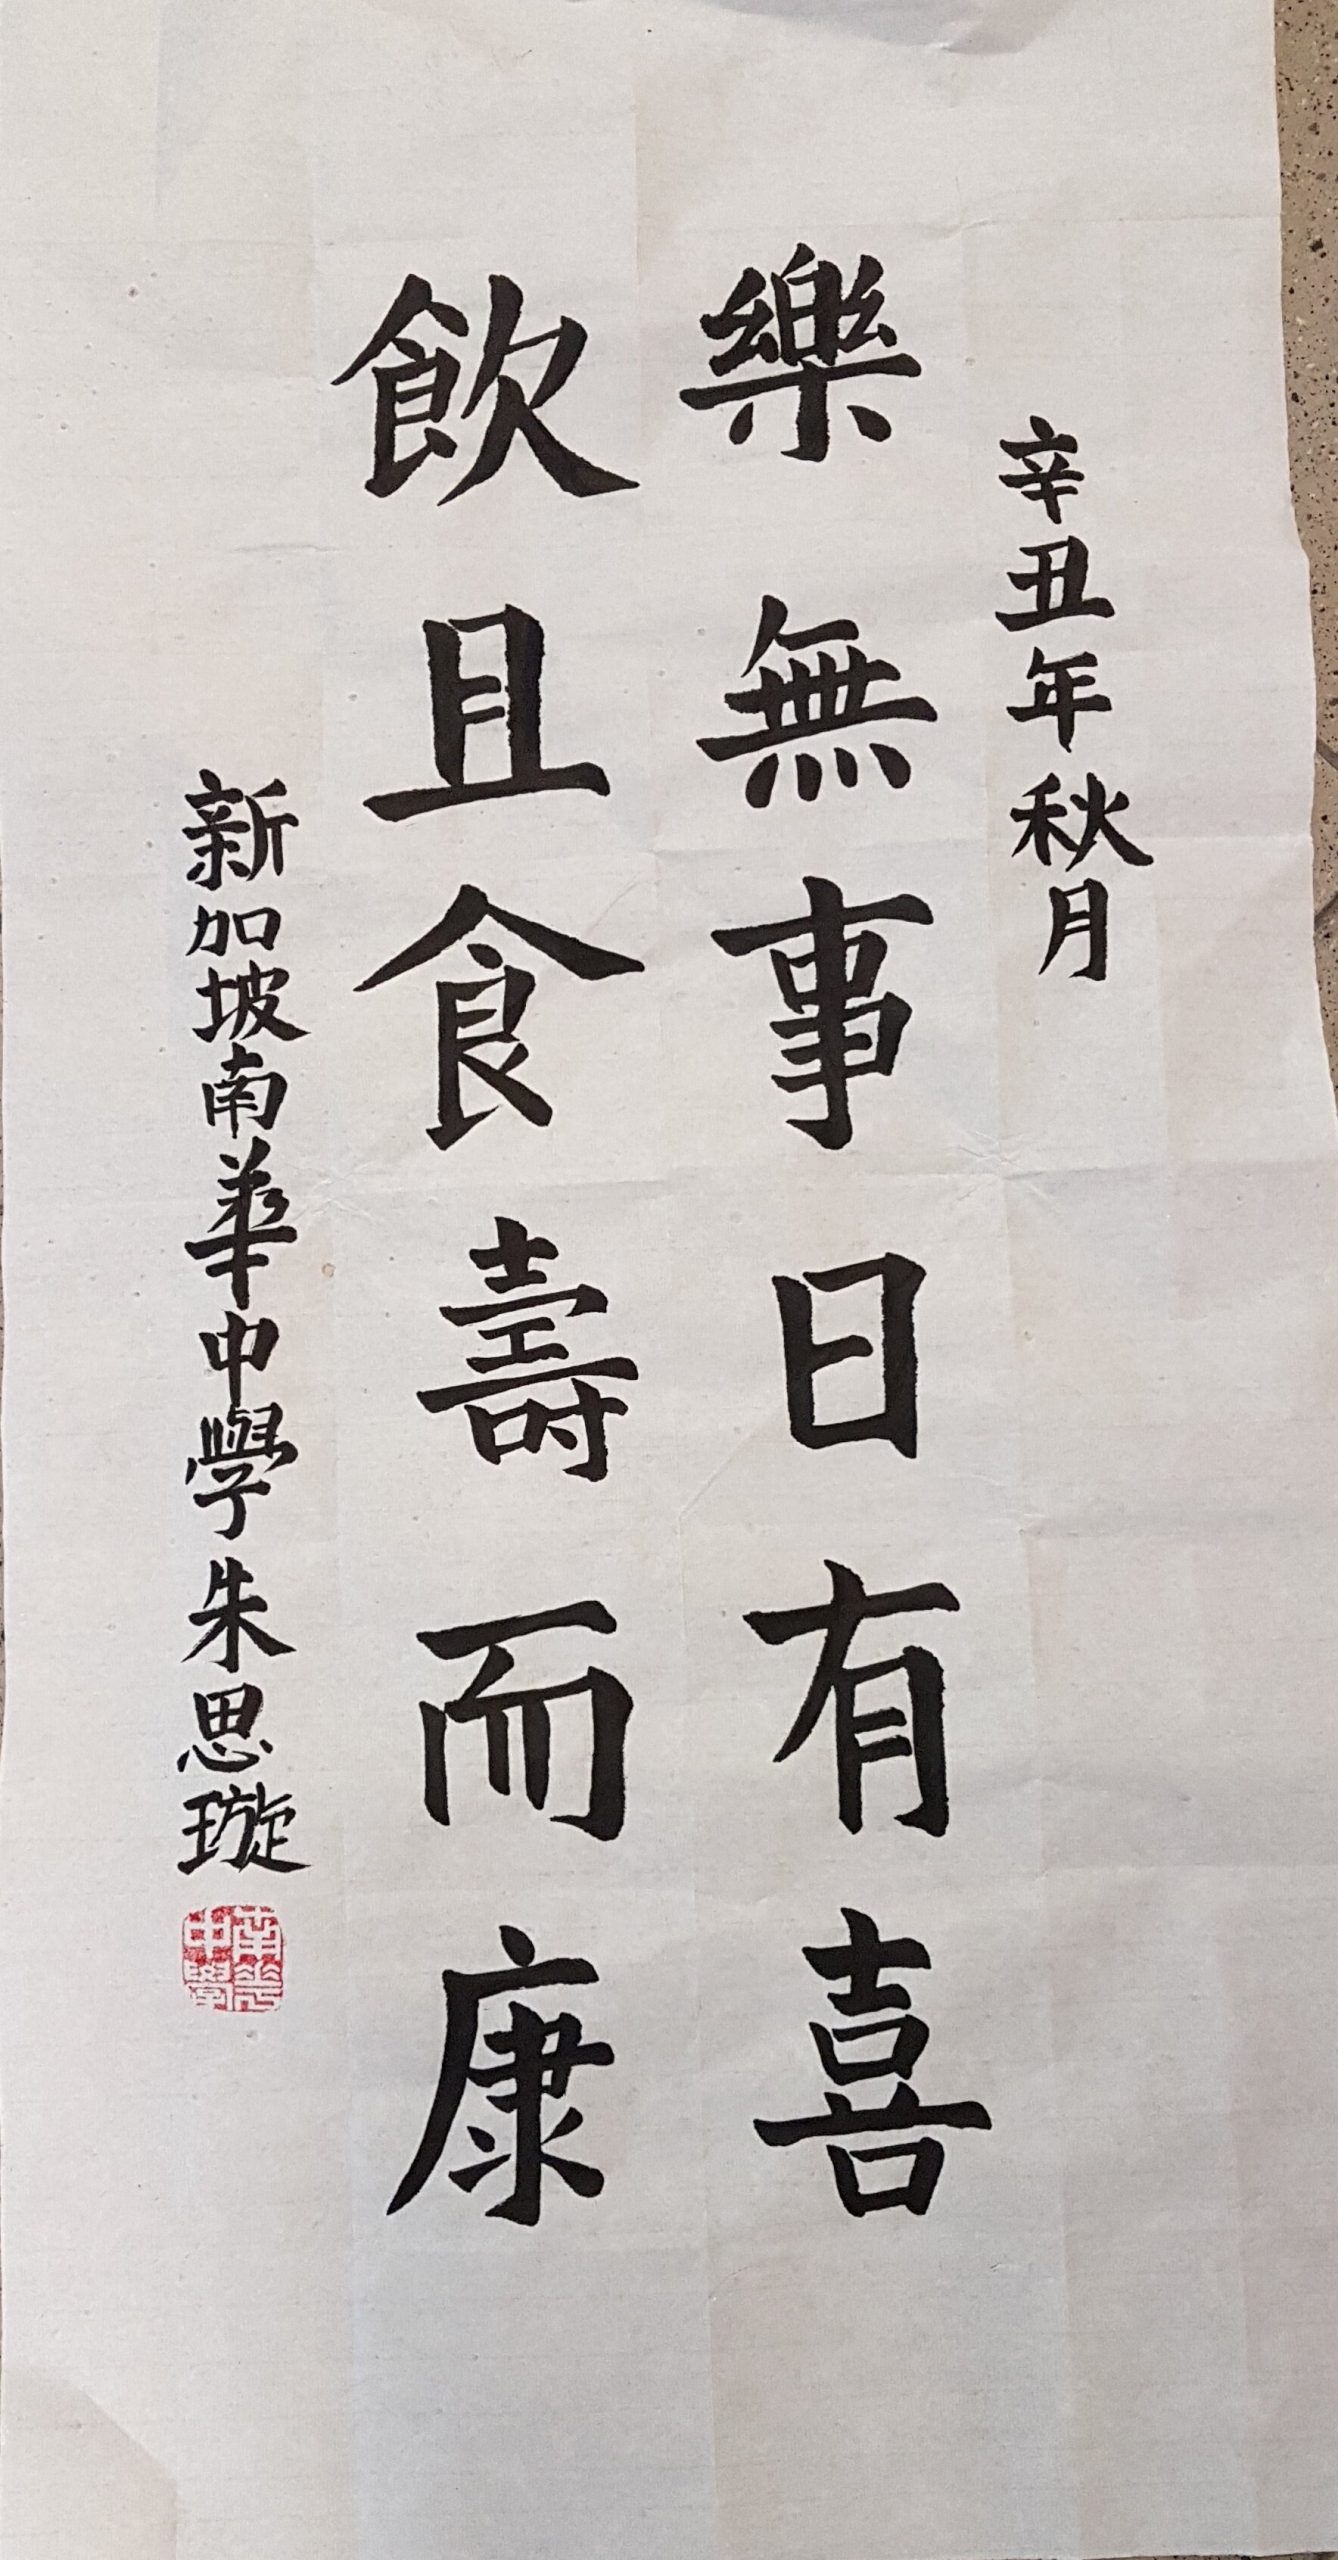 辛丑年秋月
樂無事日有喜
飲且食壽而康
新加坡南華中學朱思璇
南華
中學